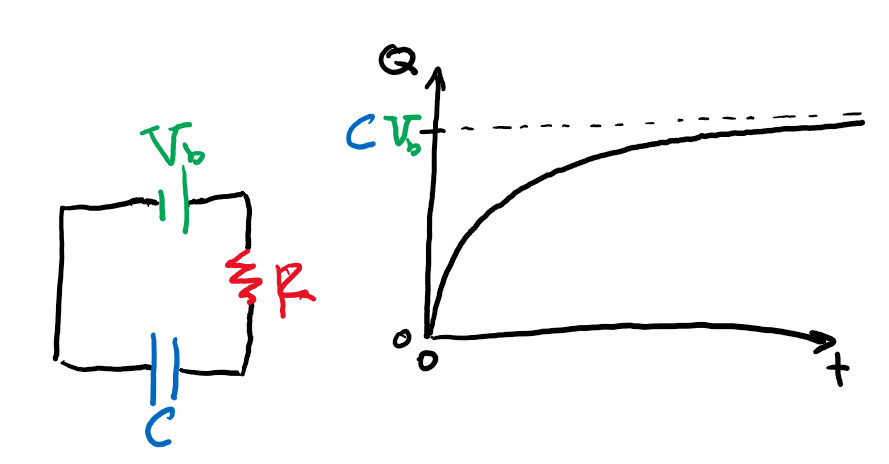 V_b
R
C
Q
C V_b
0
0
t